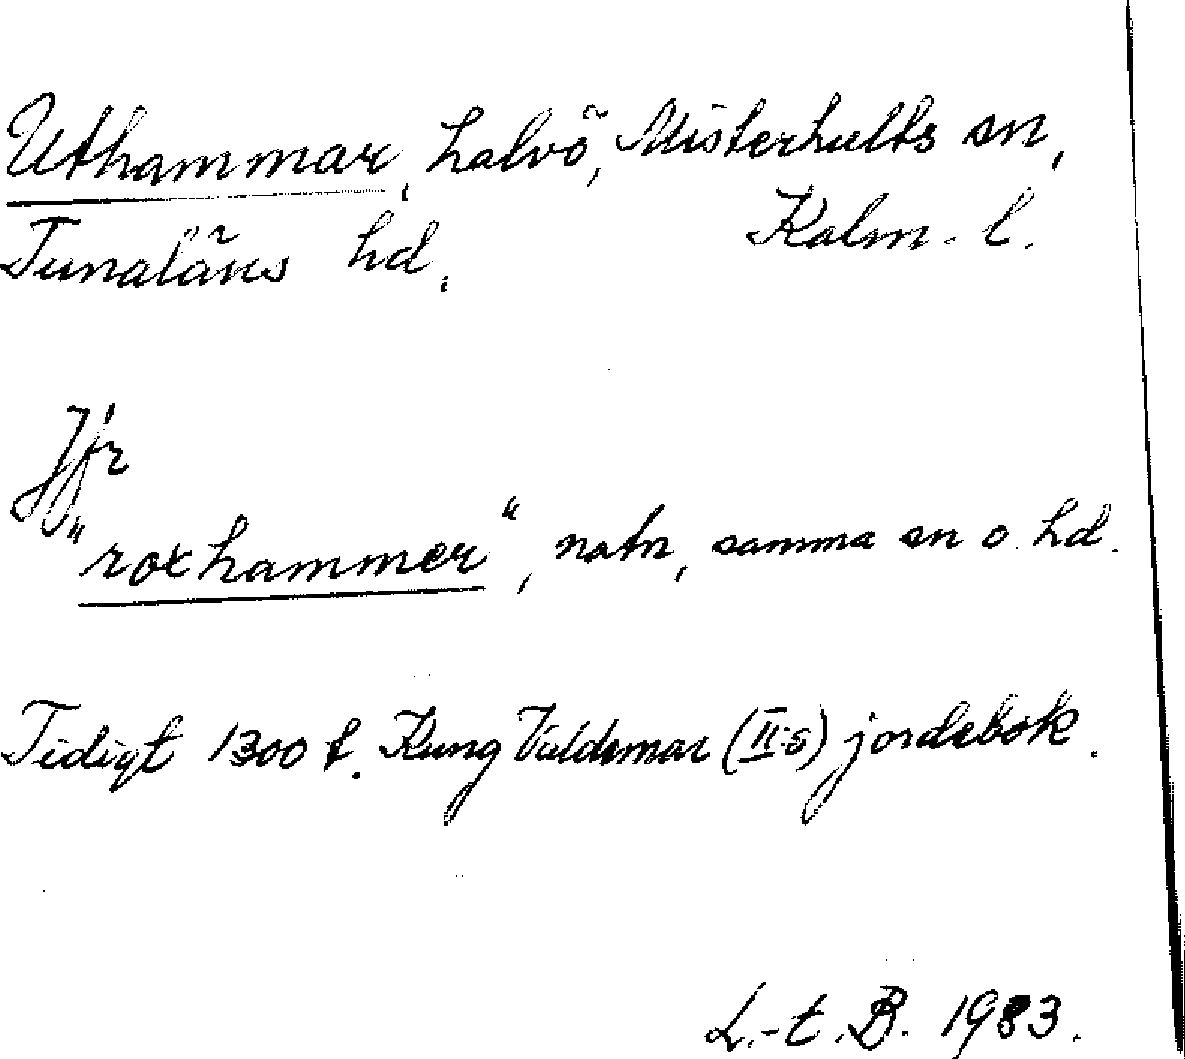 Uthammar, halvö, Misterhults sn,
Tunaläns hd, Kalm. l.
Jfr
"roxhammer", natn, samma sn o. hd.
Tidigt 1300 t. Kung Valdemar (II:s) jordebok.
L.-t. B. 1983.